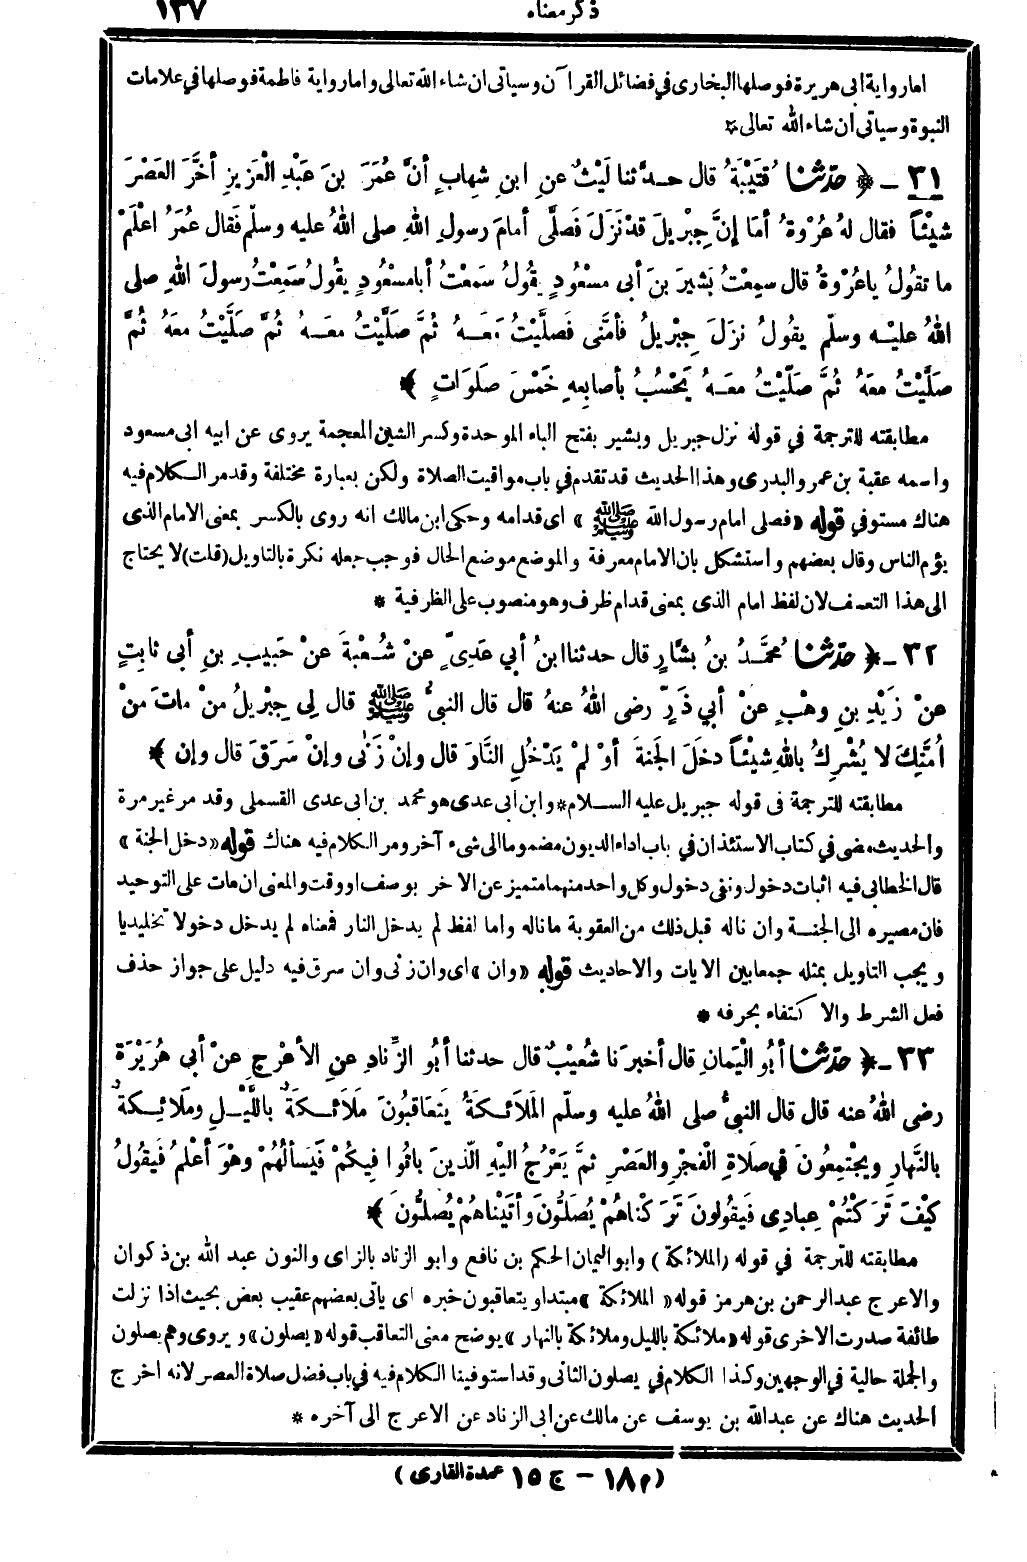 ذكر معناه ١٣٧
اما رواية ابى هريرة فوصلها البخارى في فضائل القرآن وسياتى ان شاء الله تعالى واما رواية فاطمة فوصلها في علامات
النبوة وسياتى ان شاء الله تعالى *
٣١ - ﴿ حدّثنا قُتَيْبَةُ قال حدَّثنا لَيْثٌ عنِ ابنِ شِهابٍ أنَّ عُمَرَ بنَ عَبْدِ الْعَزِيزِ أخَّرَ العَصْرَ
شيْئاً فقال لهُ عُرْوةُ أمَا إنَّ جِبْرِيلَ قدْ نَزَلَ فَصلَّى أمامَ رسولِ اللهِ صلى اللهُ عليه وسلّم فَقال عُمَرُ اعْلَمْ
ما تقُولُ ياعُرْوةُ قال سمِعْتُ بَشِيرَ بنَ أبى مسْعُودٍ يقُولُ سَمعْتُ أبا مسْعُودٍ يقُولُ سَمِعْتُ رسولَ اللهِ صلى
اللهُ عليْه وسلّم يقُولُ نزَلَ جِبْرِيلُ فأمَّنى فَصلَّيْتُ مَعَهُ ثُمَّ صَلَّيْتُ معَهُ ثُمَّ صَلَّيْتُ معَهُ ثُمَّ
صَلَّيْتُ معَهُ ثُمَّ صَلّيْتُ معَهُ يَحْسُبُ بأصابِعهِ خَمْسَ صَلَوَاتٍ ﴾
مطابقته للترجمة في قوله نزل جبريل وبشير بفتح الباء الموحدة وكسر الشين المعجمة يروى عن ابيه ابى مسعود
واسمه عقبة بن عمرو البدرى وهذا الحديث قد تقدم في باب مواقيت الصلاة ولكن بعبارة مختلفة وقد مر الكلام فيه
هناك مستوفي قوله «فصلى امام رسول الله ﷺ» اى قدامه وحكى ابن مالك انه روى بالكسر بمعنى الامام الذى
يؤم الناس وقال بعضهم واستشكل بان الامام معرفة والموضع موضع الحال فوجب جعله نكرة بالتاويل (قلت) لا يحتاج
الى هذا التعسف لان لفظ امام الذى بمعنى قدام ظرف وهو منصوب على الظرفية *
٣٢ - ﴿ حدّثنا مُحمَّدُ بنُ بشَّارٍ قال حدثنا ابنُ أبي عَدِىٍّ عنْ شُعْبةَ عنْ حَبيبِ بنِ أبى ثابتٍ
عنْ زَيْدِ بنِ وهْبٍ عنْ أبي ذَرٍّ رضى اللهُ عنهُ قال قال النبىُّ ﷺ قال لِى جِبْرِيلُ منْ ماتَ منْ
اُمَّتِكَ لا يُشْرِكُ باللهِ شيْئاً دخلَ الجَنةَ أوْ لمْ يَدْخُلِ النَّارَ قال وإنْ زَنَى وإنْ سَرَقَ قال وإن ﴾
مطابقته للترجمة فى قوله جبريل عليه السلام * وابن ابى عدى هو محمد بن ابى عدى القسملى وقد مر غير مرة
والحديث مضى في كتاب الاستئذان في باب اداء الديون مضموما الى شىء آخر ومر الكلام فيه هناك قوله «دخل الجنة»
قال الخطابى فيه اثبات دخول ونفى دخول وكل واحد منهما متميز عن الاخر بوصف او وقت والمعنى ان مات على التوحيد
فان مصيره الى الجنة وان ناله قبل ذلك من العقوبة ماناله واما لفظ لم يدخل النار فمعناه لم يدخل دخولا تخليديا
ويجب التاويل بمثله جمعا بين الايات والاحاديث قوله «وان» اى وان زنى وان سرق فيه دليل على جواز حذف
فعل الشرط والاكتفاء بحرفه *
٣٣ - ﴿ حدّثنا أبُو الْيَمانِ قال أخبرَنا شُعيْبٌ قال حدثنا أبُو الزِّنادِ عنِ الأعْرَجِ عنْ أبى هُرَيْرَةَ
رضى اللهُ عنه قال قال النبىُّ صلى اللهُ عليه وسلّم المَلَائكَةُ يَتعَاقبُونَ مَلَائكَةٌ باللَّيْلِ ومَلَائِكةٌ
بالنَّهارِ ويجْتمِعُونَ في صلَاةِ الْفجْرِ والعَصْرِ ثمَّ يَعْرُجُ اليْهِ الَّذينَ باتُوا فِيكُمْ فَيَسألُهُمْ وهْوَ أعْلمُ فَيقُولُ
كيْفَ تَرَكْتُمْ عِبادِى فَيقُولونَ تَرَكْناهُمْ يُصَلُّونَ وأتيْناهُمْ يُصلُّونَ ﴾
مطابقته للترجمة في قوله (الملائكة) وابو اليمان الحكم بن نافع وابو الزناد بالزاى والنون عبد الله بن ذكوان
والاعرج عبد الرحمن بن هرمز قوله «الملائكة» مبتدا ويتعاقبون خبره اى ياتى بعضهم عقيب بعض بحيث اذا نزلت
طائفة صدرت الاخرى قوله «ملائكة بالليل وملائكة بالنهار» يوضح معنى التعاقب قوله «يصلون» ويروى وهم يصلون
والجملة حالية في الوجهين وكذا الكلام في يصلون الثانى وقد استوفينا الكلام فيه في باب فضل صلاة العصر لانه اخرج
الحديث هناك عن عبد الله بن يوسف عن مالك عن ابى الزناد عن الاعرج الى آخره *
(م ١٨ - ج ١٥ عمدة القارى)